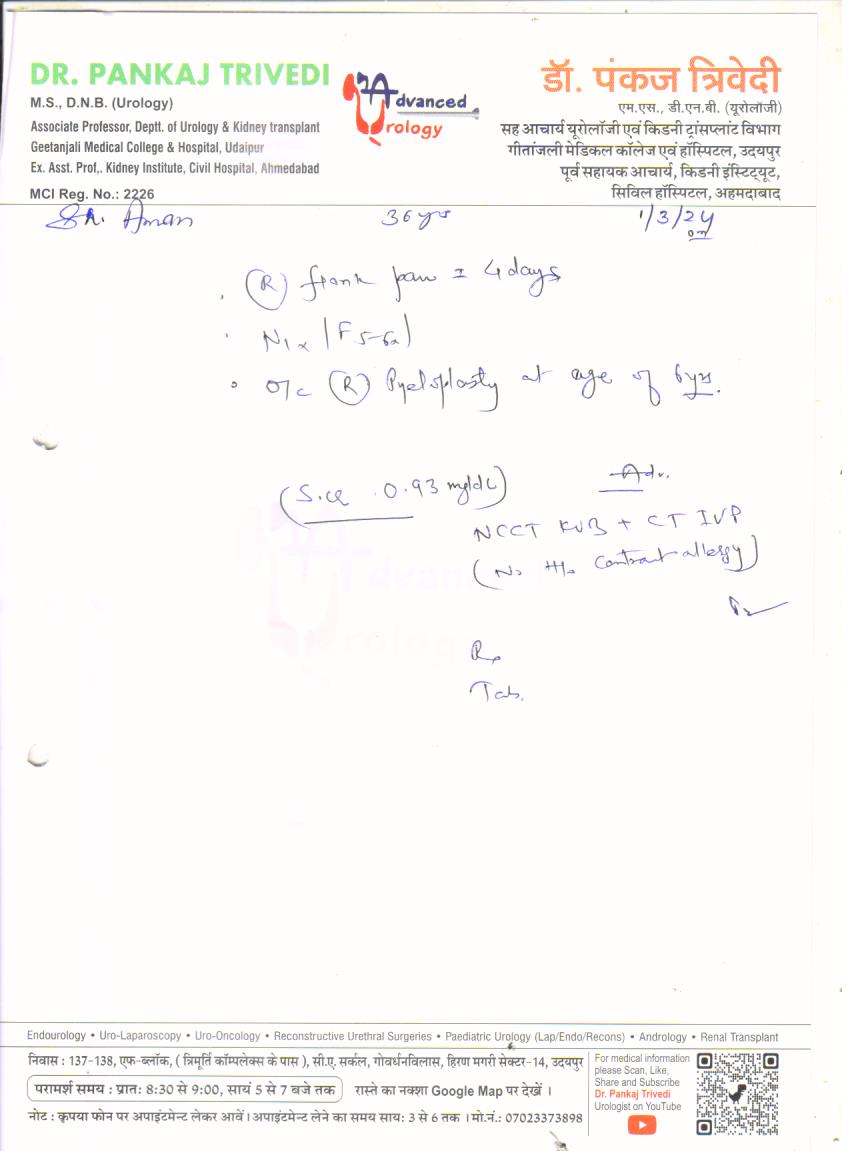 DR. PANKAJ TRIVEDI
M.S., D.N.B. (Urology)
Associate Professor, Deptt. of Urology & Kidney transplant
Geetanjali Medical College & Hospital, Udaipur
Ex. Asst. Prof,. Kidney Institute, Civil Hospital, Ahmedabad
MCI Reg. No.: 2226
Advanced
Urology
डॉ. पंकज त्रिवेदी
एम.एस., डी.एन.बी. (यूरोलॉजी)
सह आचार्य यूरोलॉजी एवं किडनी ट्रांसप्लांट विभाग
गीतांजली मेडिकल कॉलेज एवं हॉस्पिटल, उदयपुर
पूर्व सहायक आचार्य, किडनी इंस्टिट्यूट,
सिविल हॉस्पिटल, अहमदाबाद
Sh. Aman 36 yrs 1/3/24
(R) flank pain 4 days
(R) Pyeloplasty at age of 6 yrs.
(S.cr 0.93 mg/dl) Adv.
NCCT KUB + CT IVP
(No H/o Contrast allergy)
Rx
Tab.
Advanced
Urology
Endourology • Uro-Laparoscopy • Uro-Oncology • Reconstructive Urethral Surgeries • Paediatric Urology (Lap/Endo/Recons) • Andrology • Renal Transplant
निवास : 137-138, एफ-ब्लॉक, ( त्रिमूर्ति कॉम्पलेक्स के पास ), सी.ए. सर्कल, गोवर्धनविलास, हिरण मगरी सेक्टर-14, उदयपुर
परामर्श समय : प्रातः 8:30 से 9:00, सायं 5 से 7 बजे तक रास्ते का नक्शा Google Map पर देखें ।
नोट : कृपया फोन पर अपाइंटमेन्ट लेकर आवें । अपाइंटमेन्ट लेने का समय सायः 3 से 6 तक । मो.नं.: 07023373898
For medical information
please Scan, Like,
Share and Subscribe
Dr. Pankaj Trivedi
Urologist on YouTube